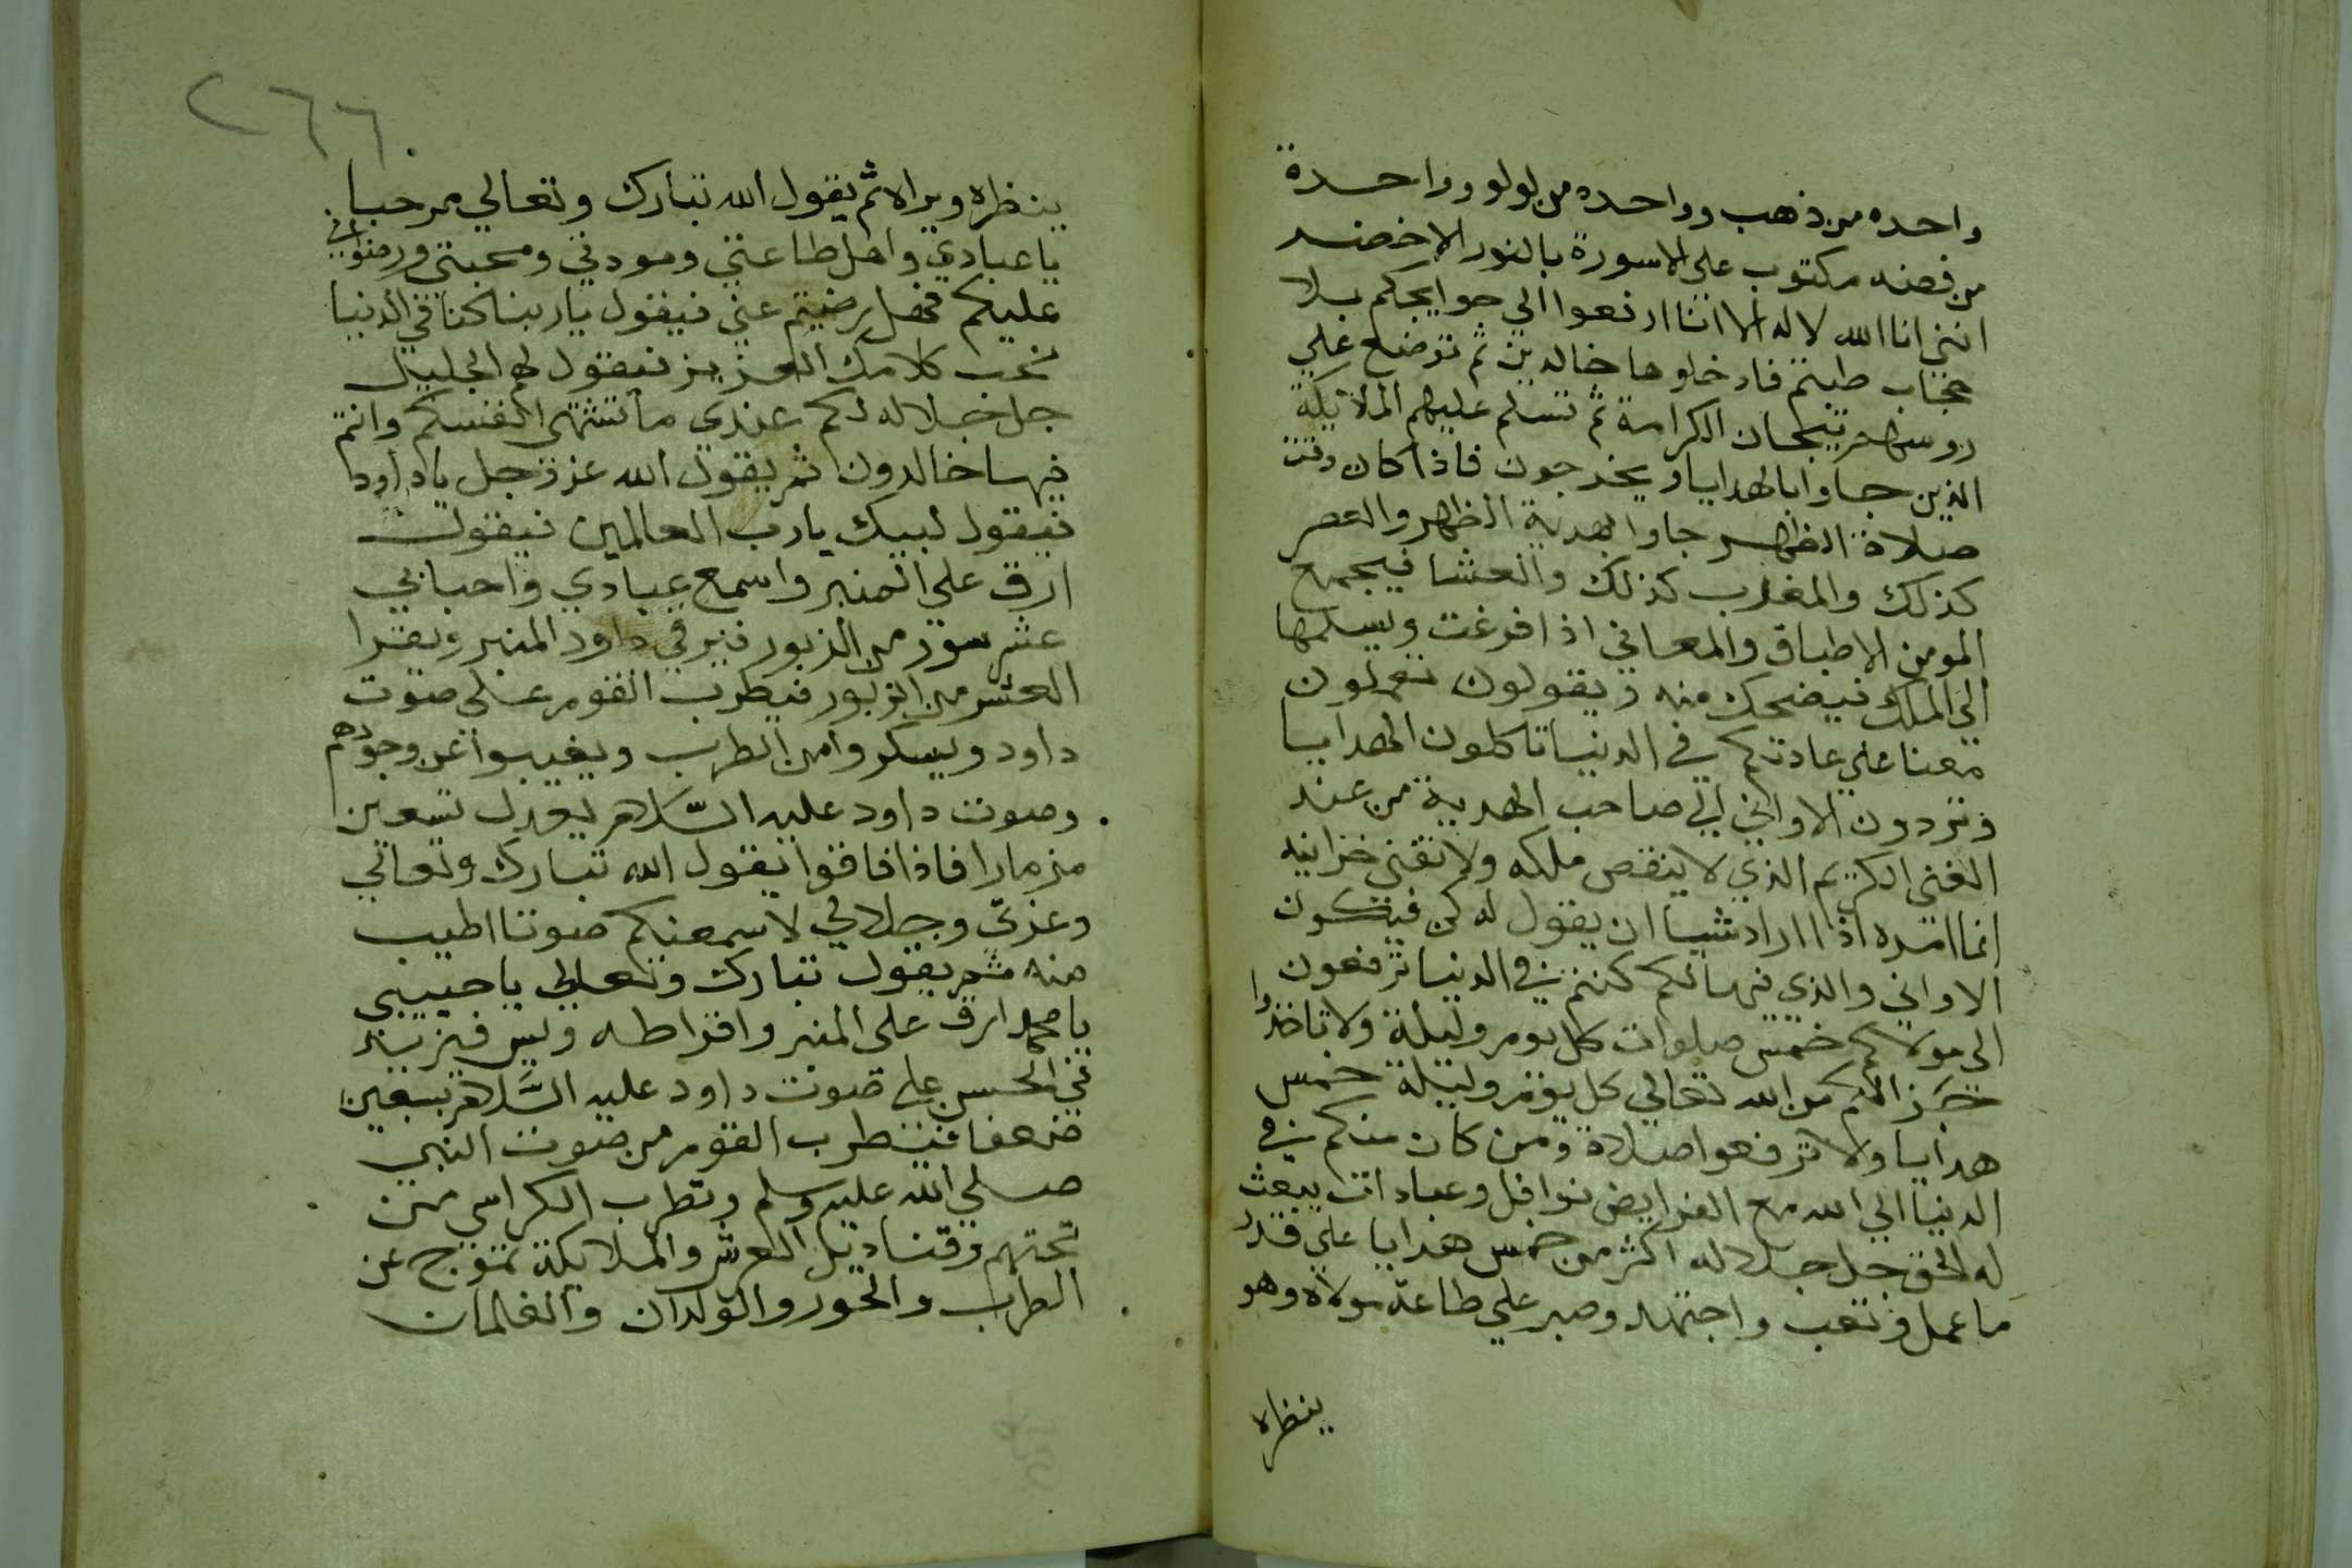 واحده من ذهب وواحده من لولو وواحدة
من فضه مكتوب على الاسورة بالنور الاخضر
انني انا الله لا اله الا انا ارفعوا الي حوايجكم بلا
حجاب طبتم فادخلوها خالدين ثم توضع علي
روسهم تيجان الكرامة ثم تسلم عليهم الملايكة
الذين جاوا بالهدايا ويخرجون فاذا كان وقت
صلاة الظهر جاوا بهدية الظهر والعصر
كذلك والمغرب كذلك والعشا فيجمع
المومن الاطباق والمعاني اذا فرغت ويسلمها
الي الملك فيضحك منه ويقولون تعملون
معنا علي عادتكم في الدنيا تاكلون الهدايا
وتردون الاواني الي صاحب الهدية من عند
الغني الكريم الذي لا ينقص ملكه ولا تفني خزاينه
انما امره اذا اراد شيا ان يقول له كن فيكون
الاواني والذي فيها لكم كنتم في الدنيا ترفعون
الى مولاكم خمس صلوات كل يوم وليلة ولا تاخذوا
جزا لكم من الله تعالي كل يوم وليلة خمس
هدايا ولا ترفعوا صلاة ومن كان منكم في
الدنيا الي الله مع الفرايض نوافل وعبادات يبعث
له الحق جل جلاله اكثر من خمس هدايا علي قدر
ما عمل وتعب واجتهد وصبر علي طاعة مولاه وهو
ينظراه
٢٦٦
ينظراه ويراه ثم يقول الله تبارك وتعالي مرحبا
يا عبادي واهل طاعتي ومودتي ومحبتي ورضواني
عليكم فهل رضيتم عني فيقول يا ربنا كنا في الدنيا
نحب كلامك العزيز فيقول لهم الجليل
جل جلاله لكم عندي ما تشتهي انفسكم وانتم
فيها خالدون ثم يقول الله عز وجل يا داود
فيقول لبيك يا رب العالمين فيقول
ارق علي المنبر واسمع عبادي واحبابي
عشر سور من الزبور فيرقي داود المنبر ويقرا
العشر من الزبور فيطرب القوم على صوت
داود ويسكروا من الطرب ويغيبوا عن وجودهم
وصوت داود عليه السلام يعدل تسعين
مزمارا فاذا فاقوا يقول الله تبارك وتعالي
وعزتي وجلالي لاسمعنكم صوتا اطيب
منه ثم يقول تبارك وتعالي يا حبيبي
يا محمد ارق على المنبر واقرا طه ويس فيزيد
في الحسن على صوت داود عليه السلام بسبعين
ضعفا فيطرب القوم من صوت النبي
صلي الله عليه وسلم وتطرب الكراسي من
تحتهم وقناديل العرش والملايكة تموج عن
الطرب والحور والولدان والغلمان